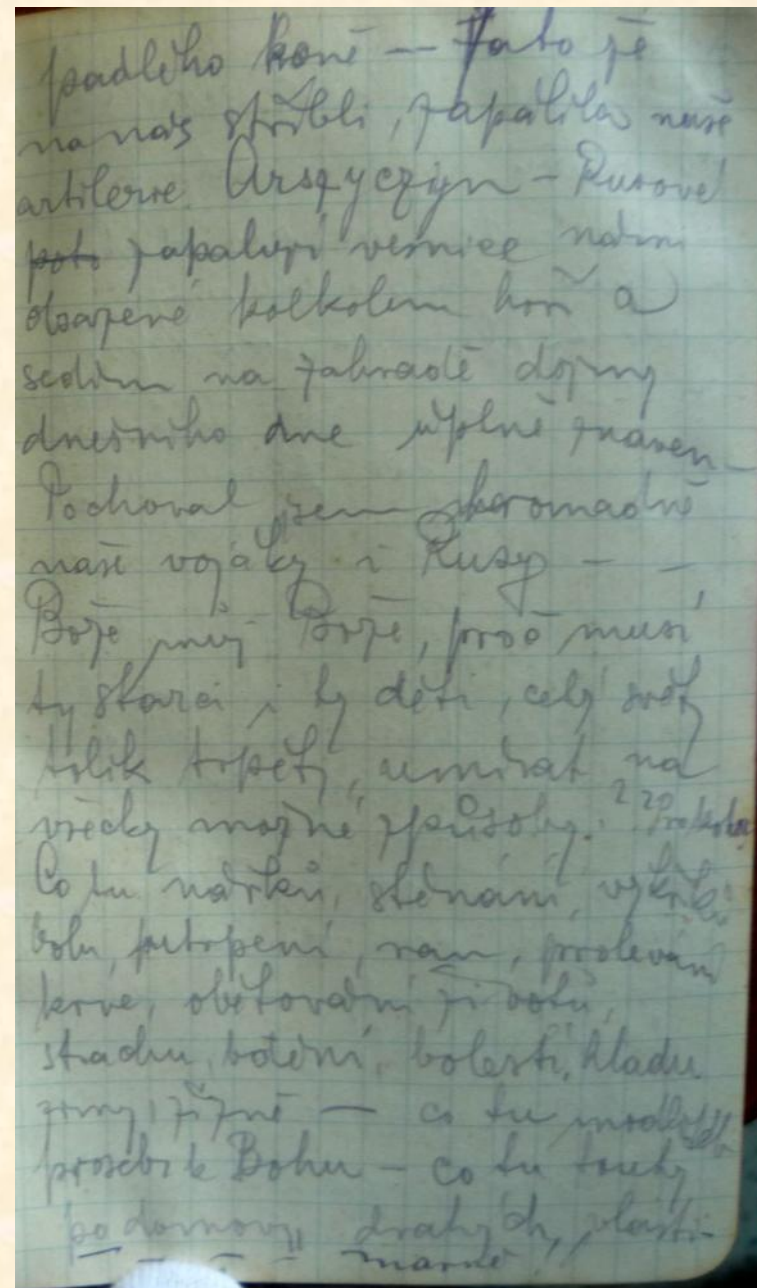 padlého koně — Zato že
na nás stříleli, zapálila naše
artilerie Arszyczyn – Rusové
zapalují vesnice námi
obsazené kolkolem hoří a
sedím na zahradě dojmy
dnešního dne úplně znaven –
Pochoval jsem hromadně
naše vojáky i Rusy – –,
Bože můj Bože, proč musí
ty starci i ty děti, celý svět
tolik trpěti, umírat na
všecky možné způsoby.
Co tu nářků, sténání, výkřiků
bolu, utrpení, ran, prolévání
krve, obětování životů,
strachu, bolesti, hladu
zimy, žízně — co tu
proseb k Bohu – co tu touhy
po domovu, drahých, vlasti
marně!